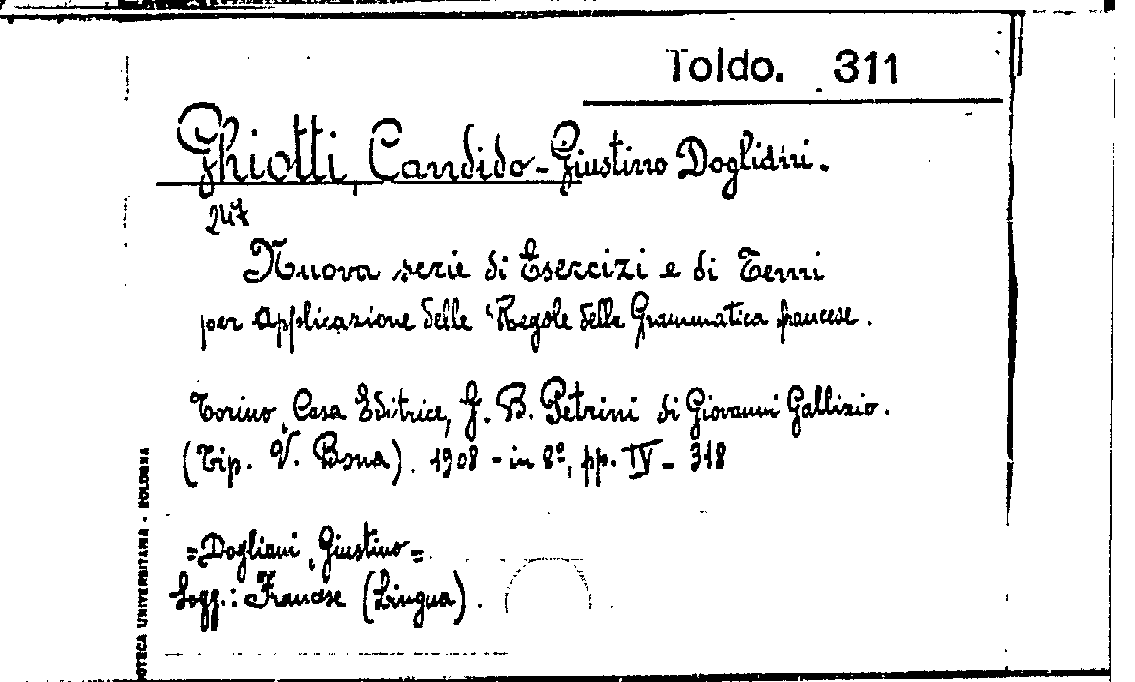 Toldo. 311
Ghiotti, Candido - Giustino Dogliani.
247
Nuova serie di Esercizi e di Temi
per Applicazione delle Regole della Grammatica francese.
Torino, Casa Editrice, G. B. Petrini di Giovanni Gallizio.
(Tip. V. Bona). 1908 - in 8º, pp. IV - 318
=Dogliani, Giustino=
Sogg.: Francese (Lingua).
OTECA UNIVERSITARIA - BOLOGNA